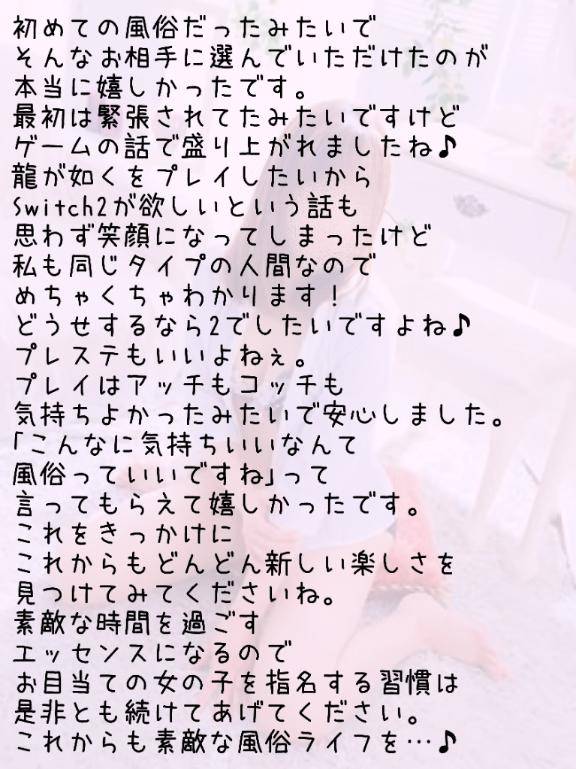 初めての風俗だったみたいで
そんなお相手に選んでいただけたのが
本当に嬉しかったです。
最初は緊張されてたみたいですけど
ゲームの話で盛り上がれましたね♪
龍が如くをプレイしたいから
Switch2が欲しいという話も
思わず笑顔になってしまったけど
私も同じタイプの人間なので
めちゃくちゃわかります!
どうせするなら2でしたいですよね♪
プレステもいいよねぇ。
プレイはアッチもコッチも
気持ちよかったみたいで安心しました。
「こんなに気持ちいいなんて
風俗っていいですね」って
言ってもらえて嬉しかったです。
これをきっかけに
これからもどんどん新しい楽しさを
見つけてみてくださいね。
素敵な時間を過ごす
エッセンスになるので
お目当ての女の子を指名する習慣は
是非とも続けてあげてください。
これからも素敵な風俗ライフを…♪